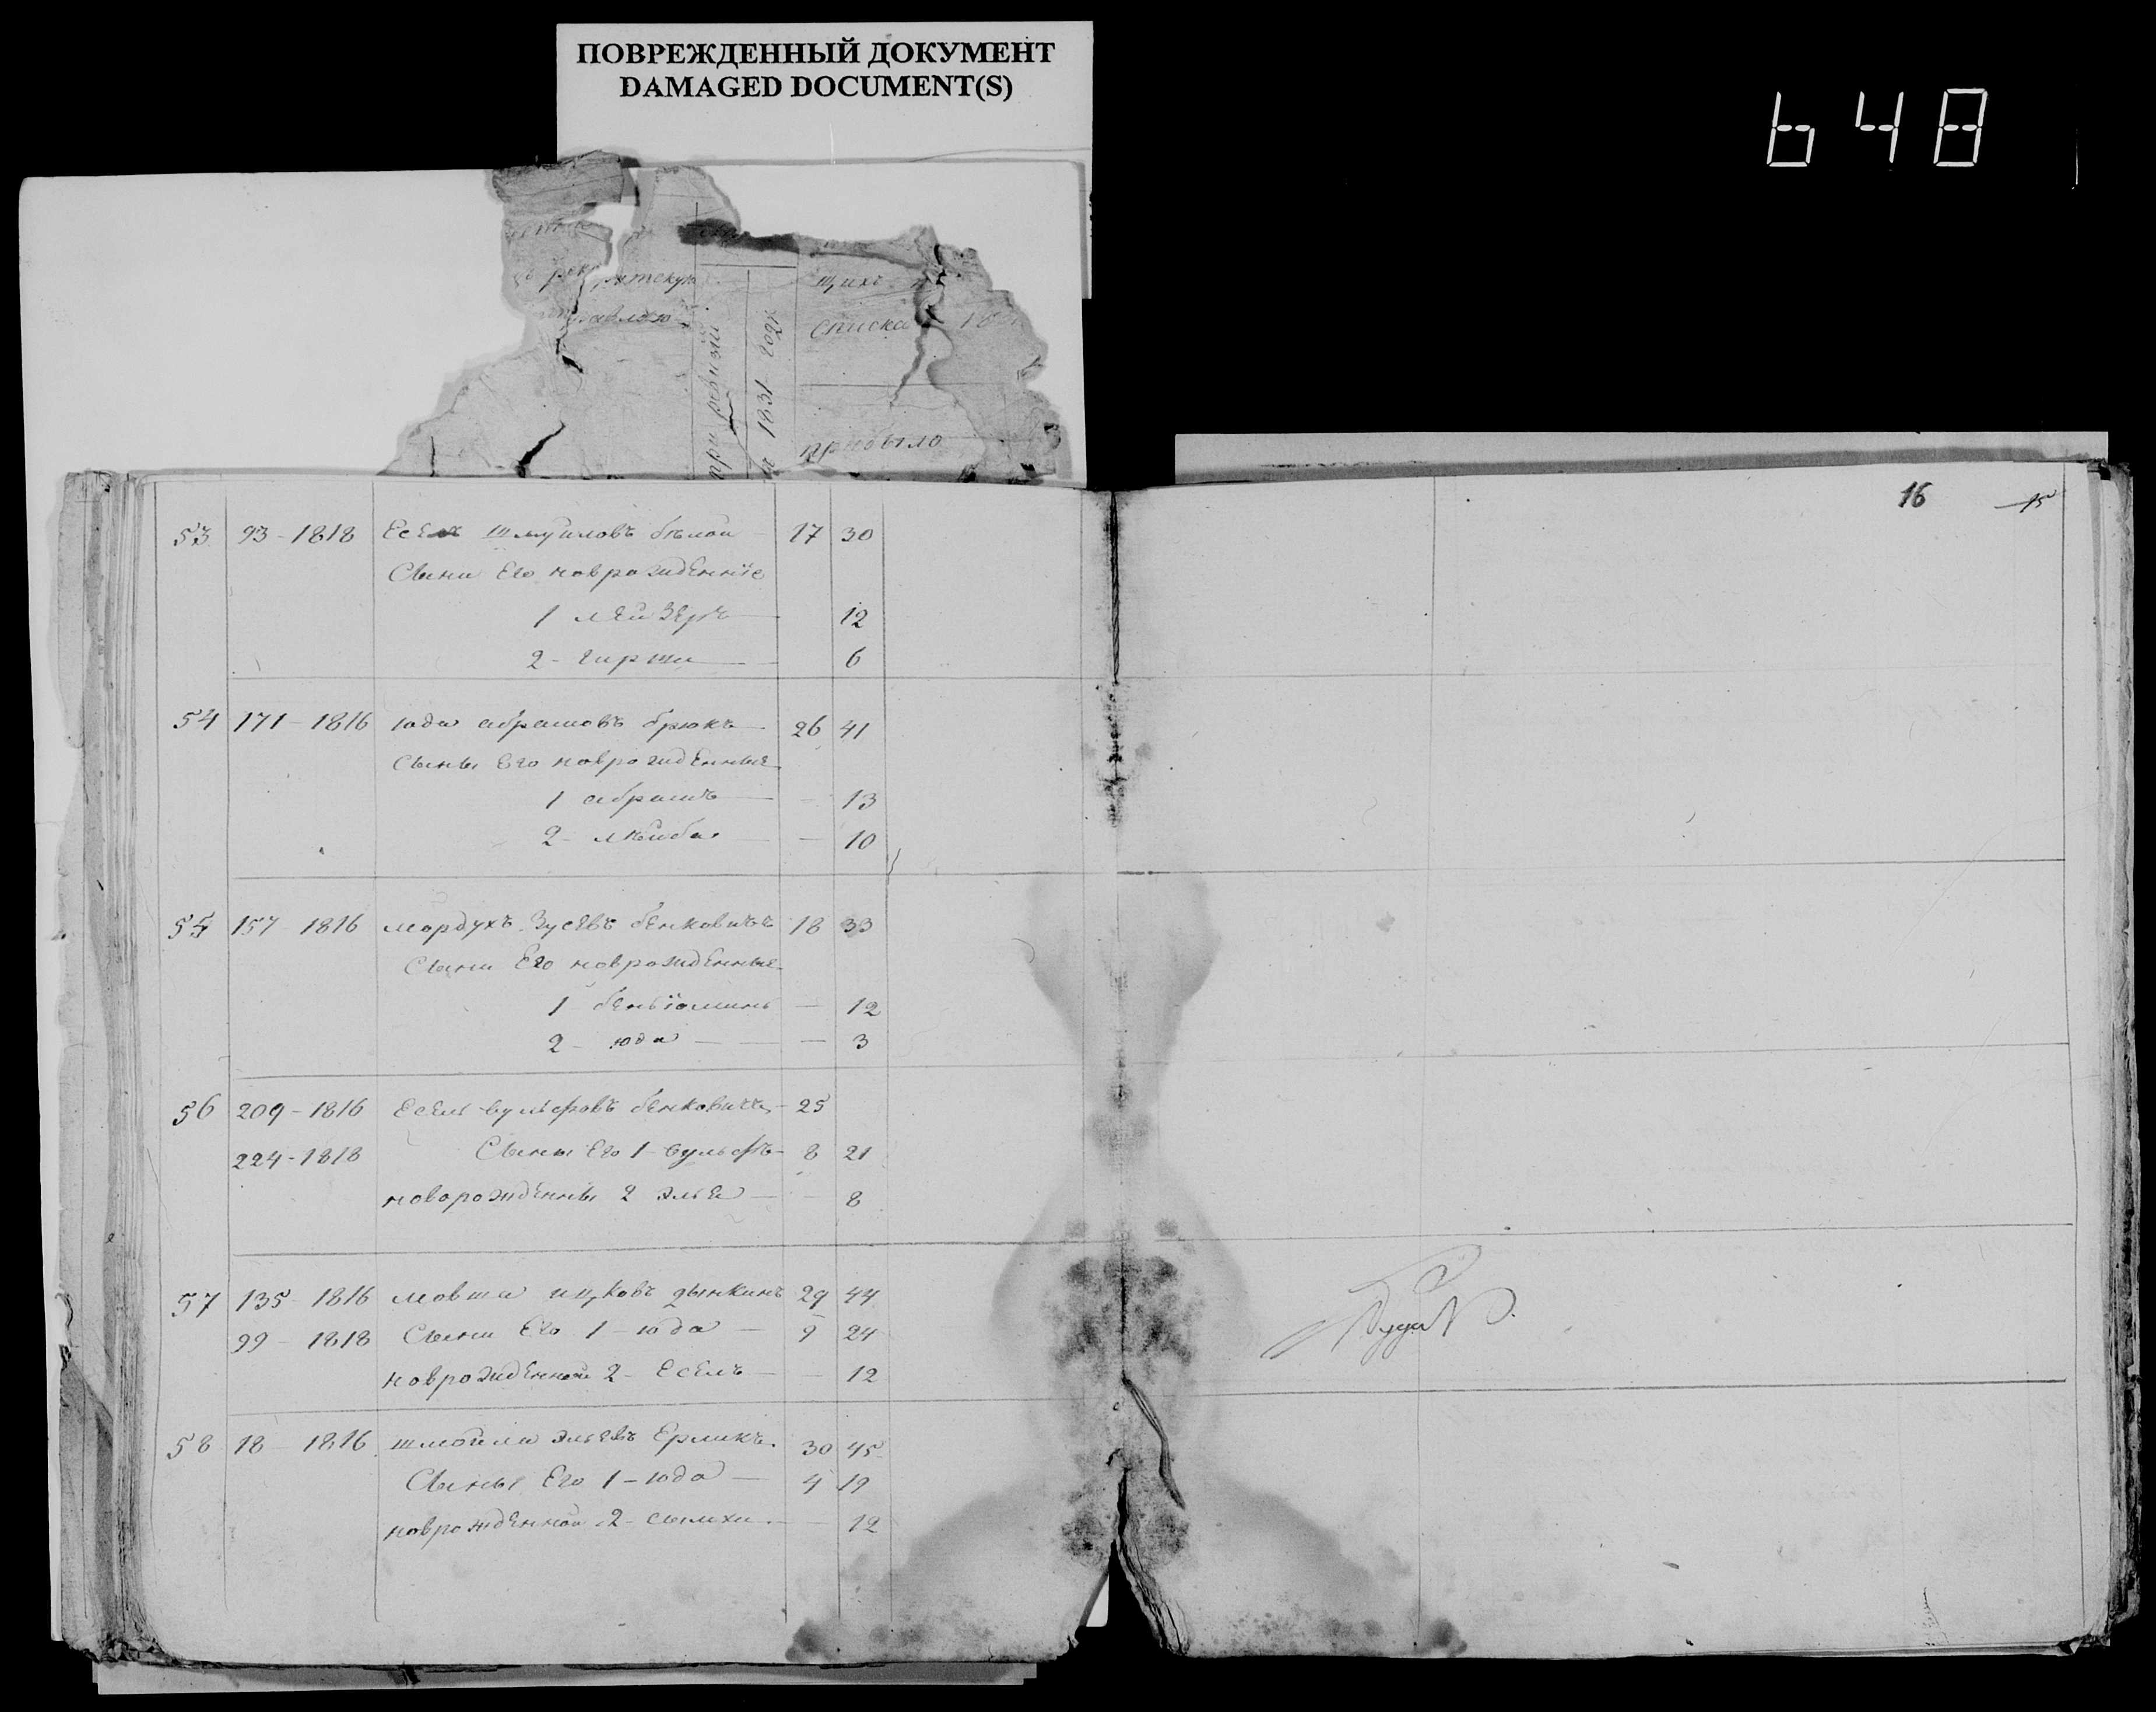 ПОВРЕЖДЕННЫЙ ДОКУМЕНТ
DAMAGED DOCUMENT(S)
648
щихъ
списка
при ревизiи
1831 года
прибыло
16 15
53 93 - 1818 Есель Шмуиловъ бѣлои 17 30
Сыни Его новрожденнiе
1 лейзеръ 12
2 - гирша 6
54 171 - 1816 юда абрамовъ брюкъ 26 41
Сыны Его новрожденные
1 абрамъ - 13
2 - лейба - 10
55 157 1816 мордухъ Зусевъ бенковичъ 18 33
Сыни Его новрожденные
1 беньiоминъ - 12
2 - юда - 3
56 209 - 1816 Есель вульфовъ бенковичъ - 25
224 - 1818 Сыны Его 1 - вульфъ - 8 21
новорожденны 2 элья - 8
57 135 - 1816 мовша ицковъ дынкинъ 29 44
99 - 1818 Сыни Его 1 - юда - 9 24
новрожденнои 2 - Есель - 12
58 18 - 1816 шмойла эльевъ Ерликъ 30 45
Сыны Его 1 - юда - 4 19
новрожденной 2 - 12